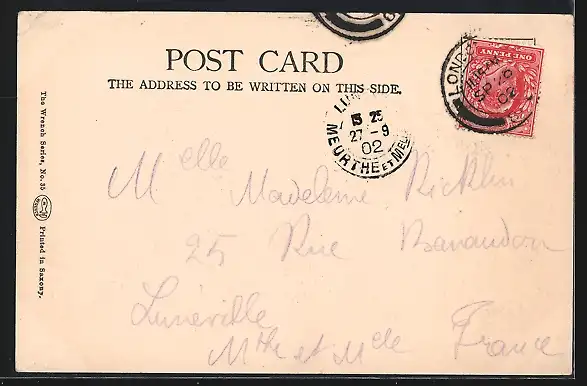 POST CARD
THE ADDRESS TO BE WRITTEN ON THIS SIDE.
ONE PENNY
LONDON
SP 26
02
LUN
15 25
27 - 9
02
MEURTHE ET M
The Wrench Series, No. 35
Printed in Saxony.
Melle Madeleine Ricklin
25 Rue Banaudon
Lunéville
Mthe et Mlle France